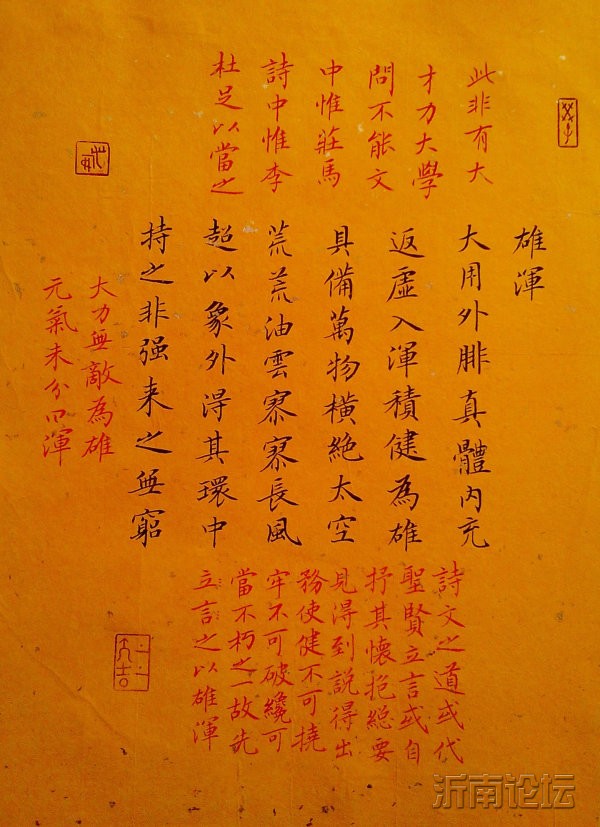 此非有大
才力大學
問不能文
中惟莊馬
詩中惟李
杜足以當之
雄渾
大用外腓真體内充
返虛入渾積健為雄
具備萬物橫絶太空
荒荒油雲寥寥長風
超以象外得其環中
持之非强来之無窮
大力無敵為雄
元氣未分曰渾
詩文之道或代
聖賢立言或自
抒其懷抱總要
見得到說得出
務使健不可撓
牢不可破纔可
當不朽之一故先
立言之以雄渾
沂南论坛